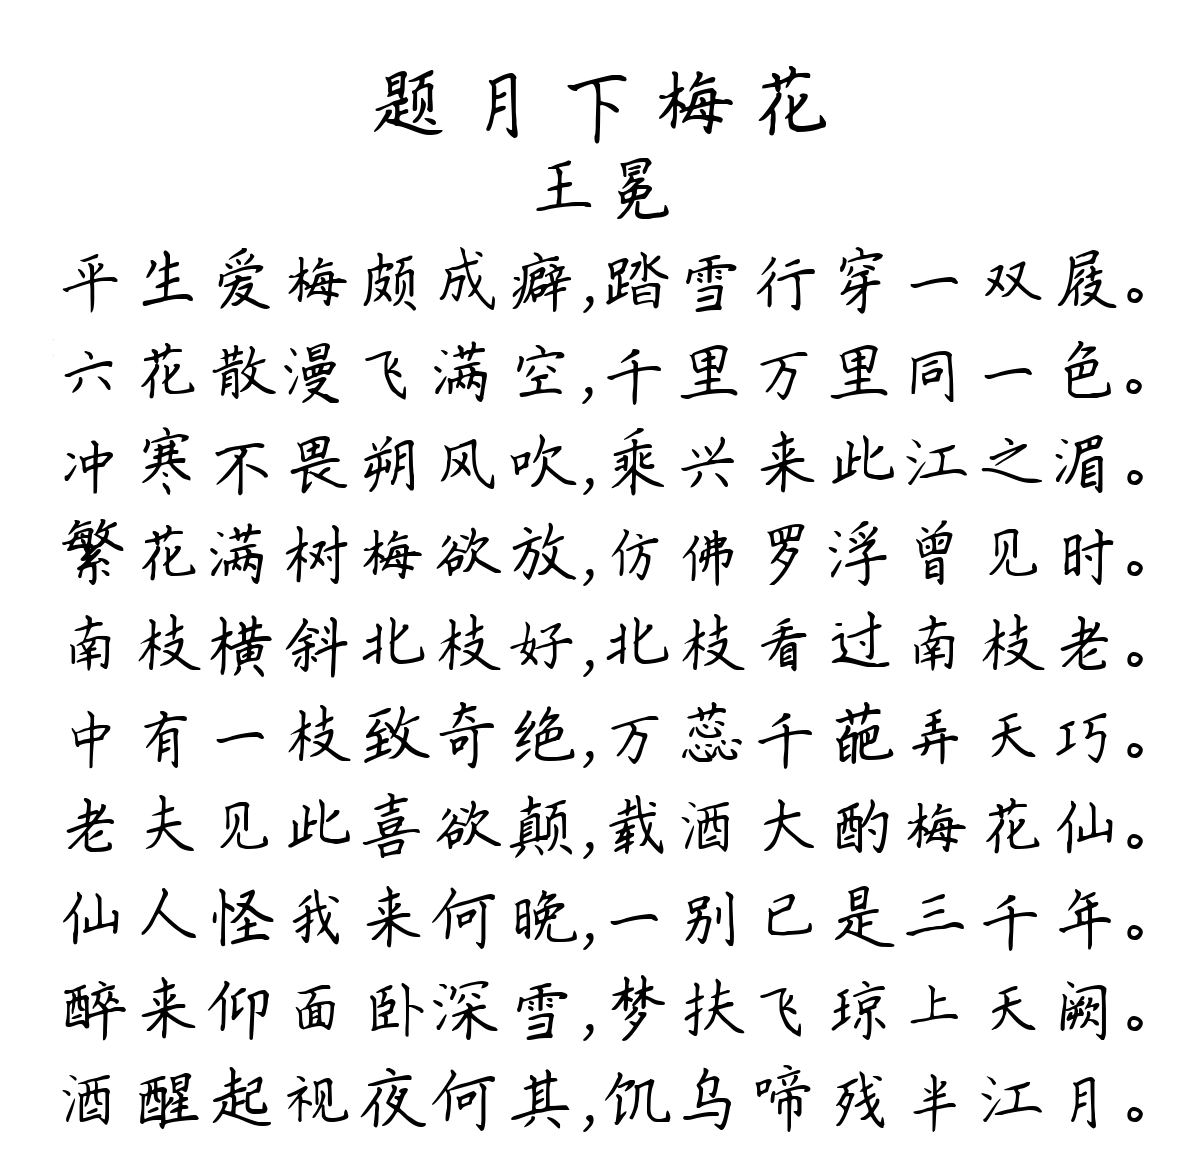 题月下梅花
王冕
平生爱梅颇成癖,踏雪行穿一双屐。
六花散漫飞满空,千里万里同一色。
冲寒不畏朔风吹,乘兴来此江之湄。
繁花满树梅欲放,仿佛罗浮曾见时。
南枝横斜北枝好,北枝看过南枝老。
中有一枝致奇绝,万蕊千葩弄天巧。
老夫见此喜欲颠,载酒大酌梅花仙。
仙人怪我来何晚,一别已是三千年。
醉来仰面卧深雪,梦扶飞琼上天阙。
酒醒起视夜何其,饥乌啼残半江月。